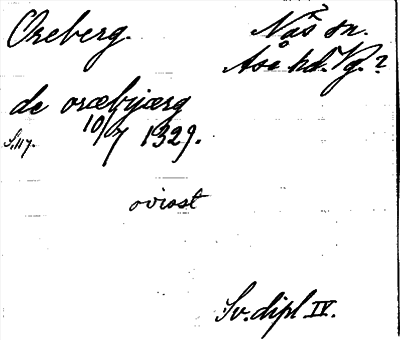 Oreberg.
Näs sn.
Åse hd. Vg.?
de oræbjærg
S.117. 10/7 1329.
ovisst
Sv. dipl IV.